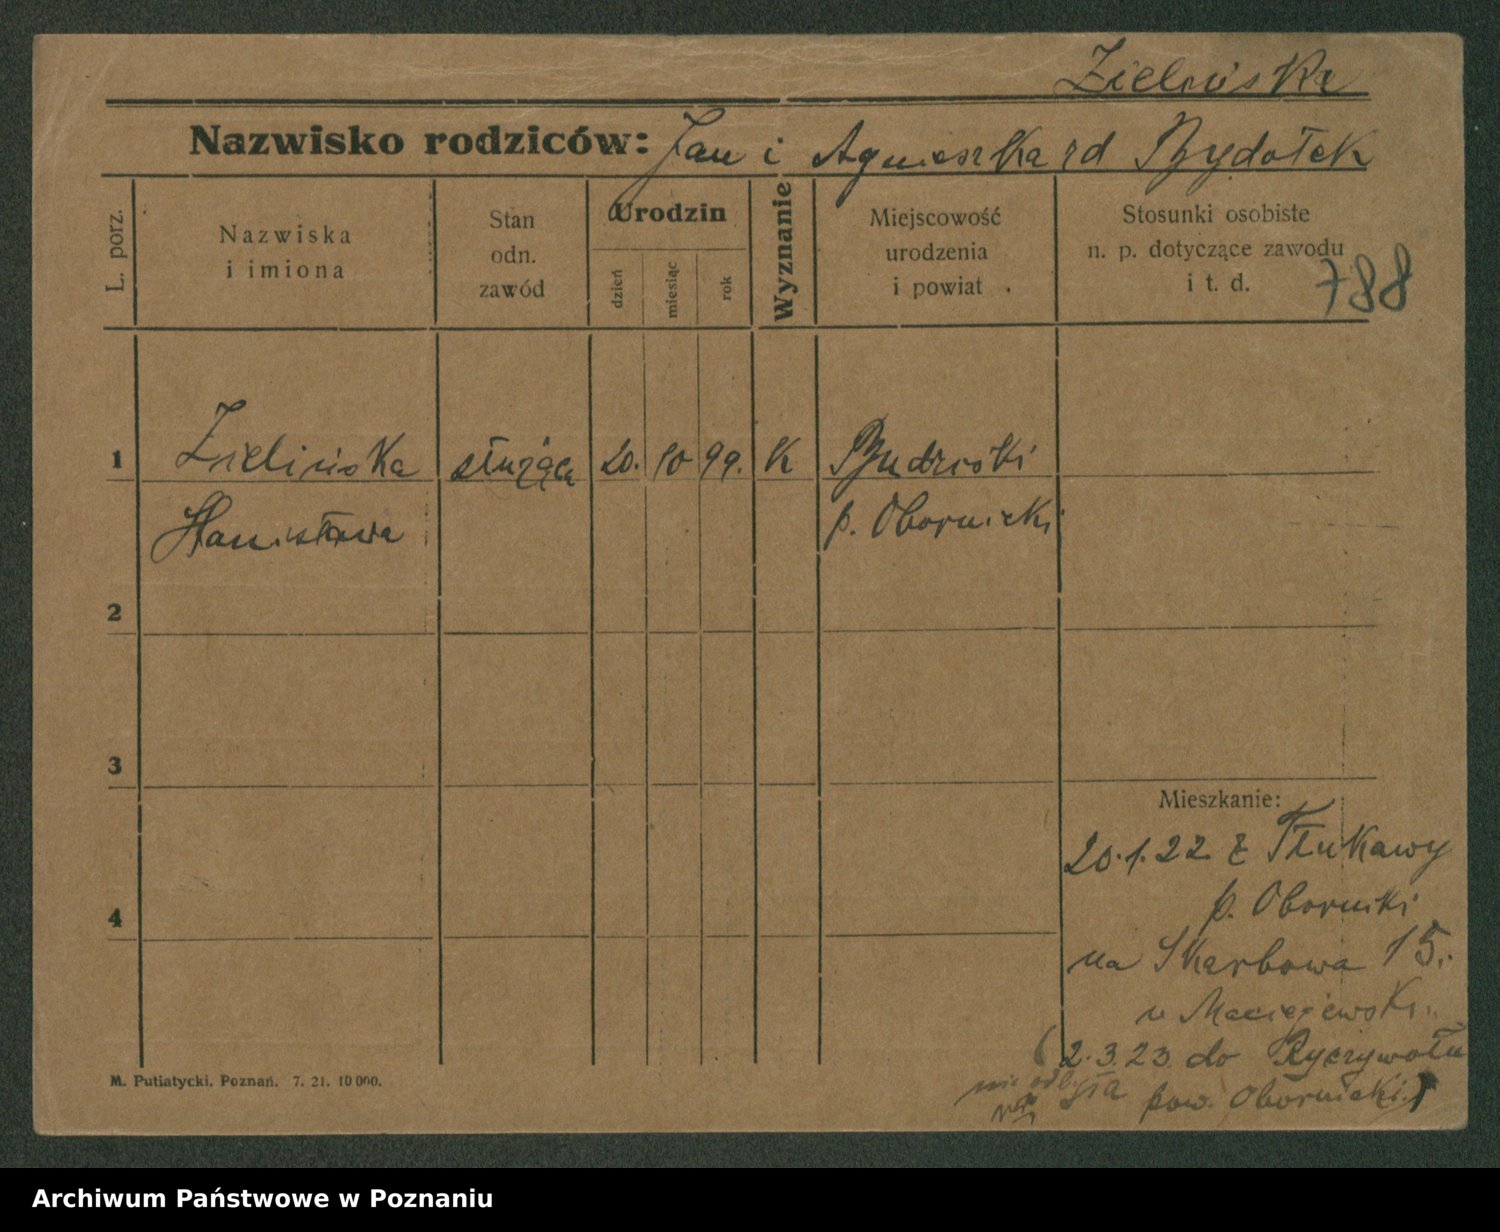 Zielińska
Nazwisko rodziców: Jan i Agnieszka rd Bydołek
L. porz.
Nazwiska
i imiona
Stan
odn.
zawód
Urodzin
dzień
miesiąc
rok
Wyznanie
Miejscowość
urodzenia
i powiat
Stosunki osobiste
n. p. dotyczące zawodu
i t. d.
788
1 Zielińska służąca 20. 10 99. K
Stanisława p. Obornicki
2
3
4
Mieszkanie:
20.1.22 z Tłukawy
p. Oborniki
na Skarbowa 15.
u Maciejewski.
(2.3.23. do Ryczywołu
pow. Obornicki.)
M. Putiatycki, Poznań. 7. 21. 10 000.
Archiwum Państwowe w Poznaniu